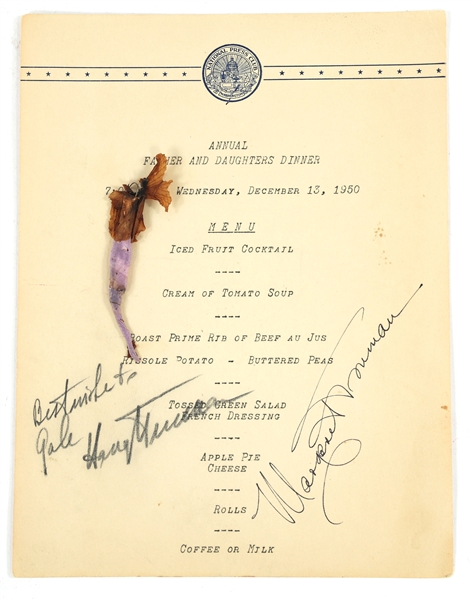 NATIONAL PRESS CLUB
ANNUAL
FATHER AND DAUGHTERS DINNER
7 WEDNESDAY, DECEMBER 13, 1950
MENU
ICED FRUIT COCKTAIL
----
CREAM OF TOMATO SOUP
----
ROAST PRIME RIB OF BEEF AU JUS
RISSOLE POTATO - BUTTERED PEAS
----
TOSSED GREEN SALAD
FRENCH DRESSING
----
APPLE PIE
CHEESE
----
ROLLS
----
COFFEE OR MILK
Best wishes to
Gale
Harry Truman
Margaret Truman